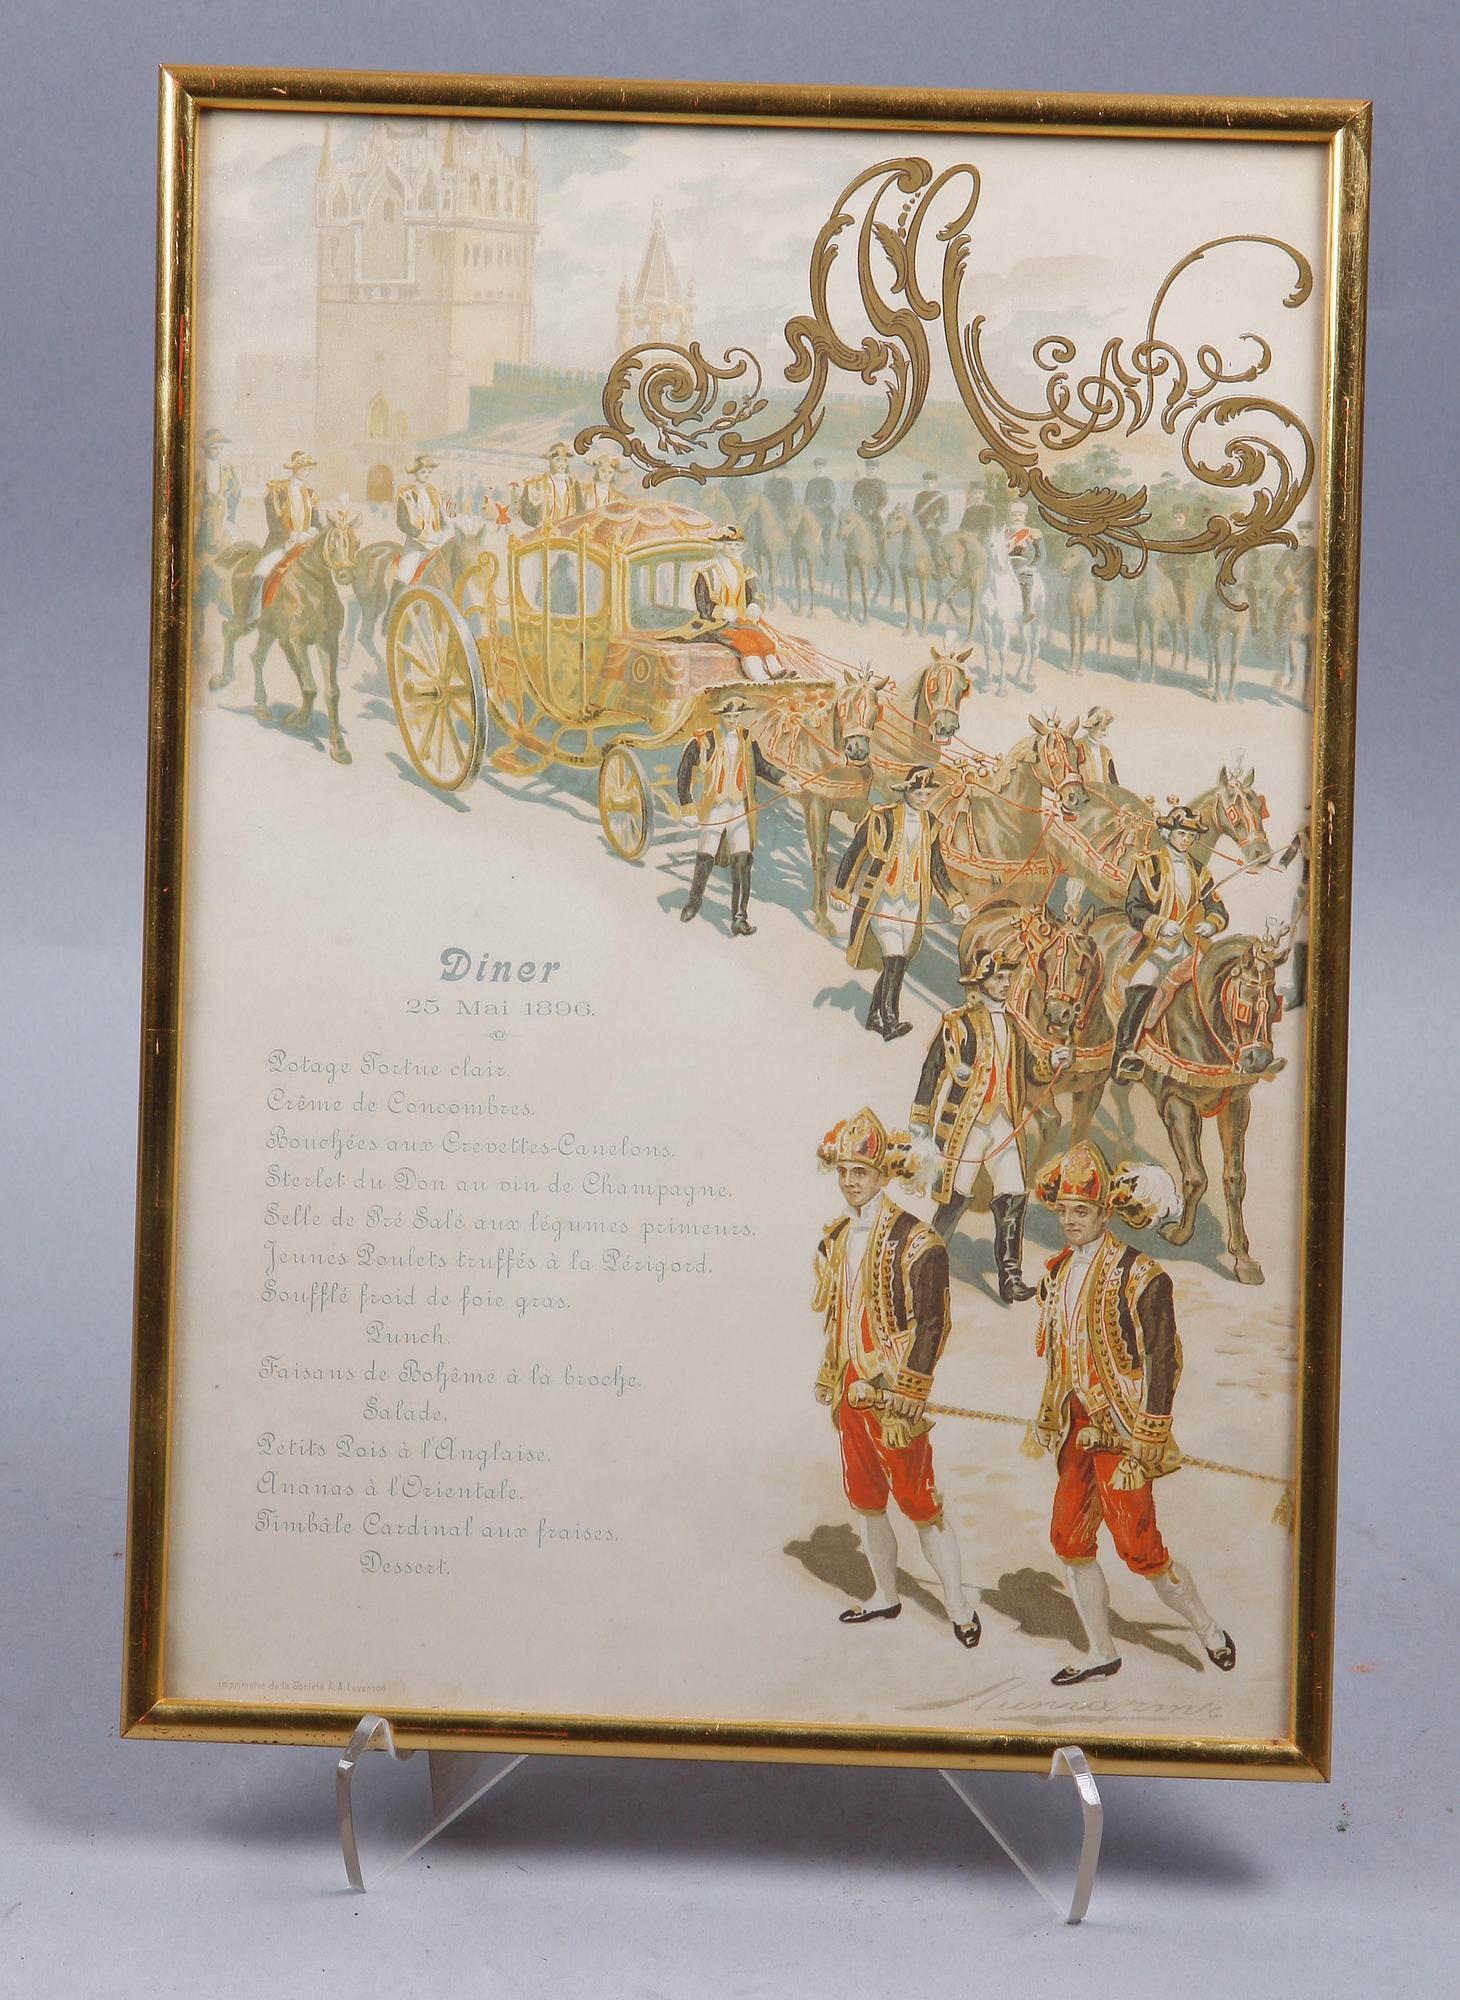 Menu
Diner
25 Mai 1896.
Potage Tortue clair.
Crême de Concombres.
Bouchées aux Crevettes-Canelons.
Sterlet du Don au vin de Champagne.
Selle de Pré Salé aux légumes primeurs.
Jeunes Poulets truffés à la Périgord.
Soufflé froid de foie gras.
Punch.
Faisans de Bohême à la broche.
Salade.
Petits Pois à l'Anglaise.
Ananas à l'Orientale.
Timbâle Cardinal aux fraises.
Dessert.
Imprimerie de la Société A. A. Levenson